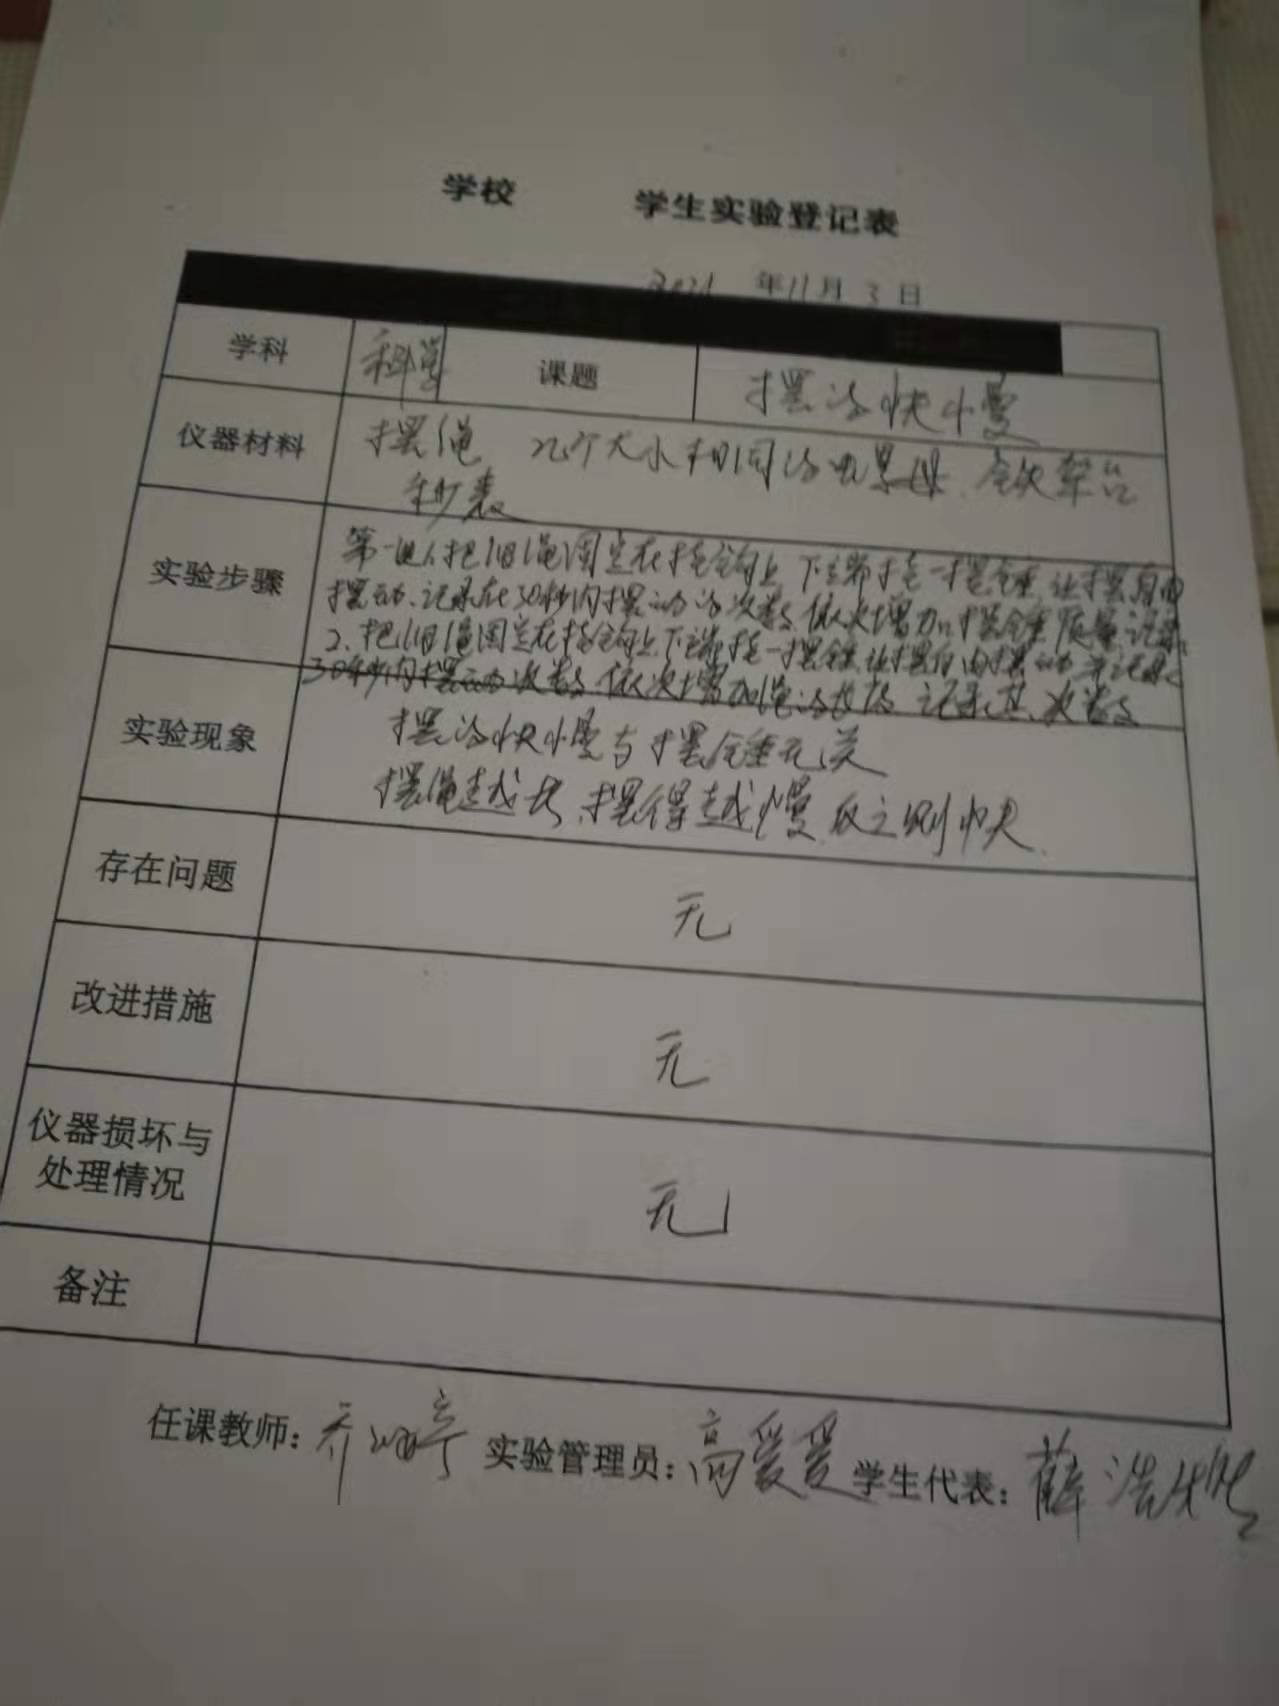 学校 学生实验登记表
2021 年11月3日
学科 科学 课题 摆的快慢
仪器材料 摆绳 几个大小相同的螺母、铁架台
秒表
实验步骤 第一组1.把1旧绳固定在挂钩上 下端挂一摆锤,让摆自由
摆动、记录在30秒内摆动的次数,依次增加摆锤质量记录
2.把1旧绳固定在挂钩上,下端挂一摆锤,让摆自由摆动并记录
30秒内摆动次数,依次增加绳的长度 记录其次数
实验现象 摆的快慢与摆锤无关
摆绳越长,摆得越慢,反之则快.
存在问题 无
改进措施 无
仪器损坏与
处理情况 无
备注
任课教师:乔 亭 实验管理员:高爱爱 学生代表:薛浩